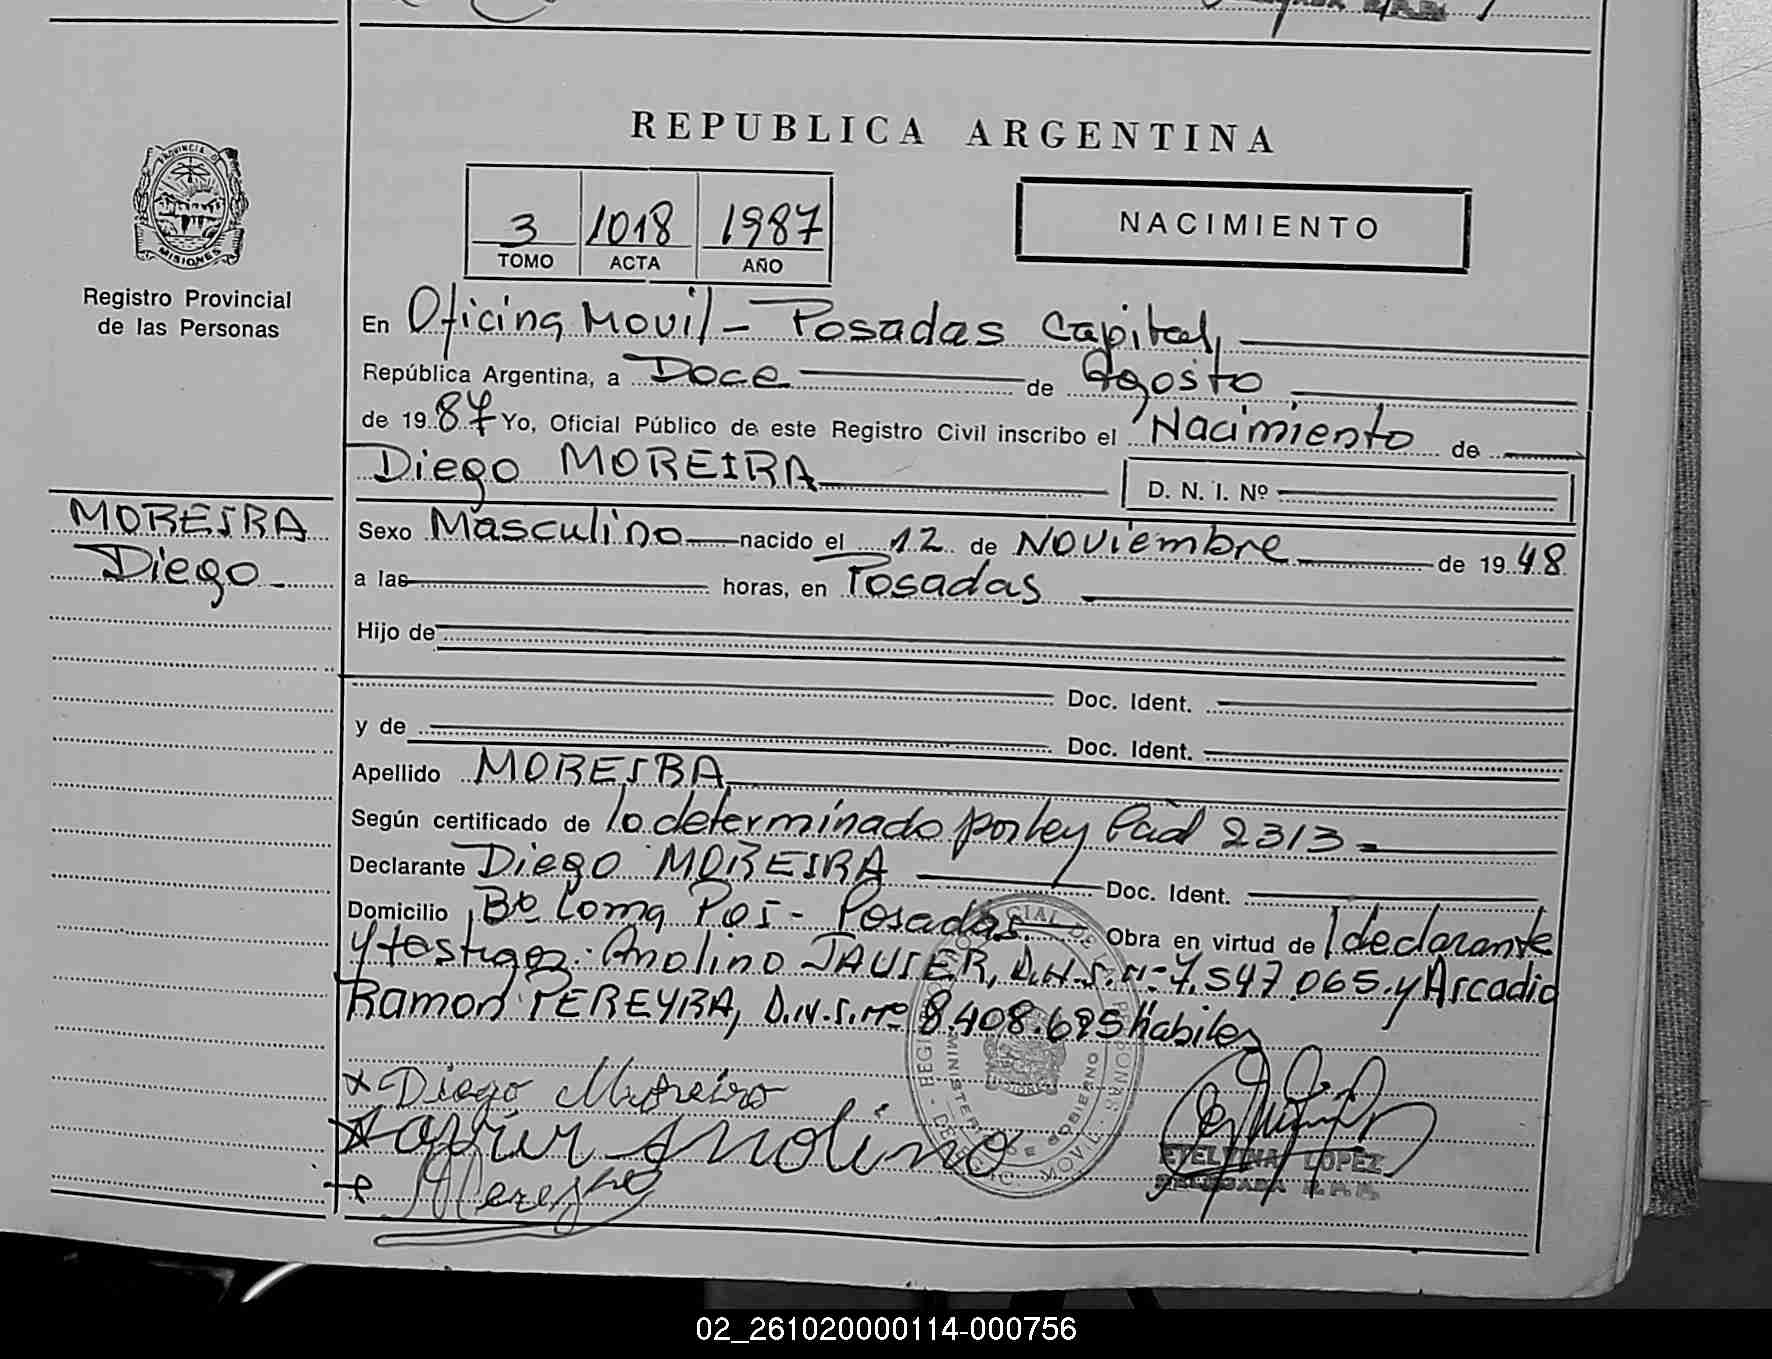 REPUBLICA ARGENTINA
3 1018 1987
TOMO ACTA AÑO
NACIMIENTO
PROVINCIA D
MISIONES
Registro Provincial
de las Personas
MOREIRA
Diego
En Oficina Movil - Posadas Capital,
República Argentina, a Doce de Agosto
de 1987 Yo, Oficial Público de este Registro Civil inscribo el Nacimiento de
Diego MOREIRA D. N. I. Nº
Sexo Masculino nacido el 12 de Noviembre de 1948
a las horas, en Posadas
Hijo de
Doc. Ident.
y de Doc. Ident.
Apellido MOREIRA
Según certificado de lo determinado por ley 2313
Declarante Diego MOREIRA Doc. Ident.
Domicilio Bº Loma Poi - Posadas Obra en virtud de declarante
y testigos: Anolino JAVIER, D.N.I. Nº 7.547.065 y Arcadio
Ramon PEREYRA, D.N.I. Nº 8.408.695 habiles
Diego Moreiro
Anolino
ETELVINA LOPEZ
DELEGADA R.P.P.
02_261020000114-000756